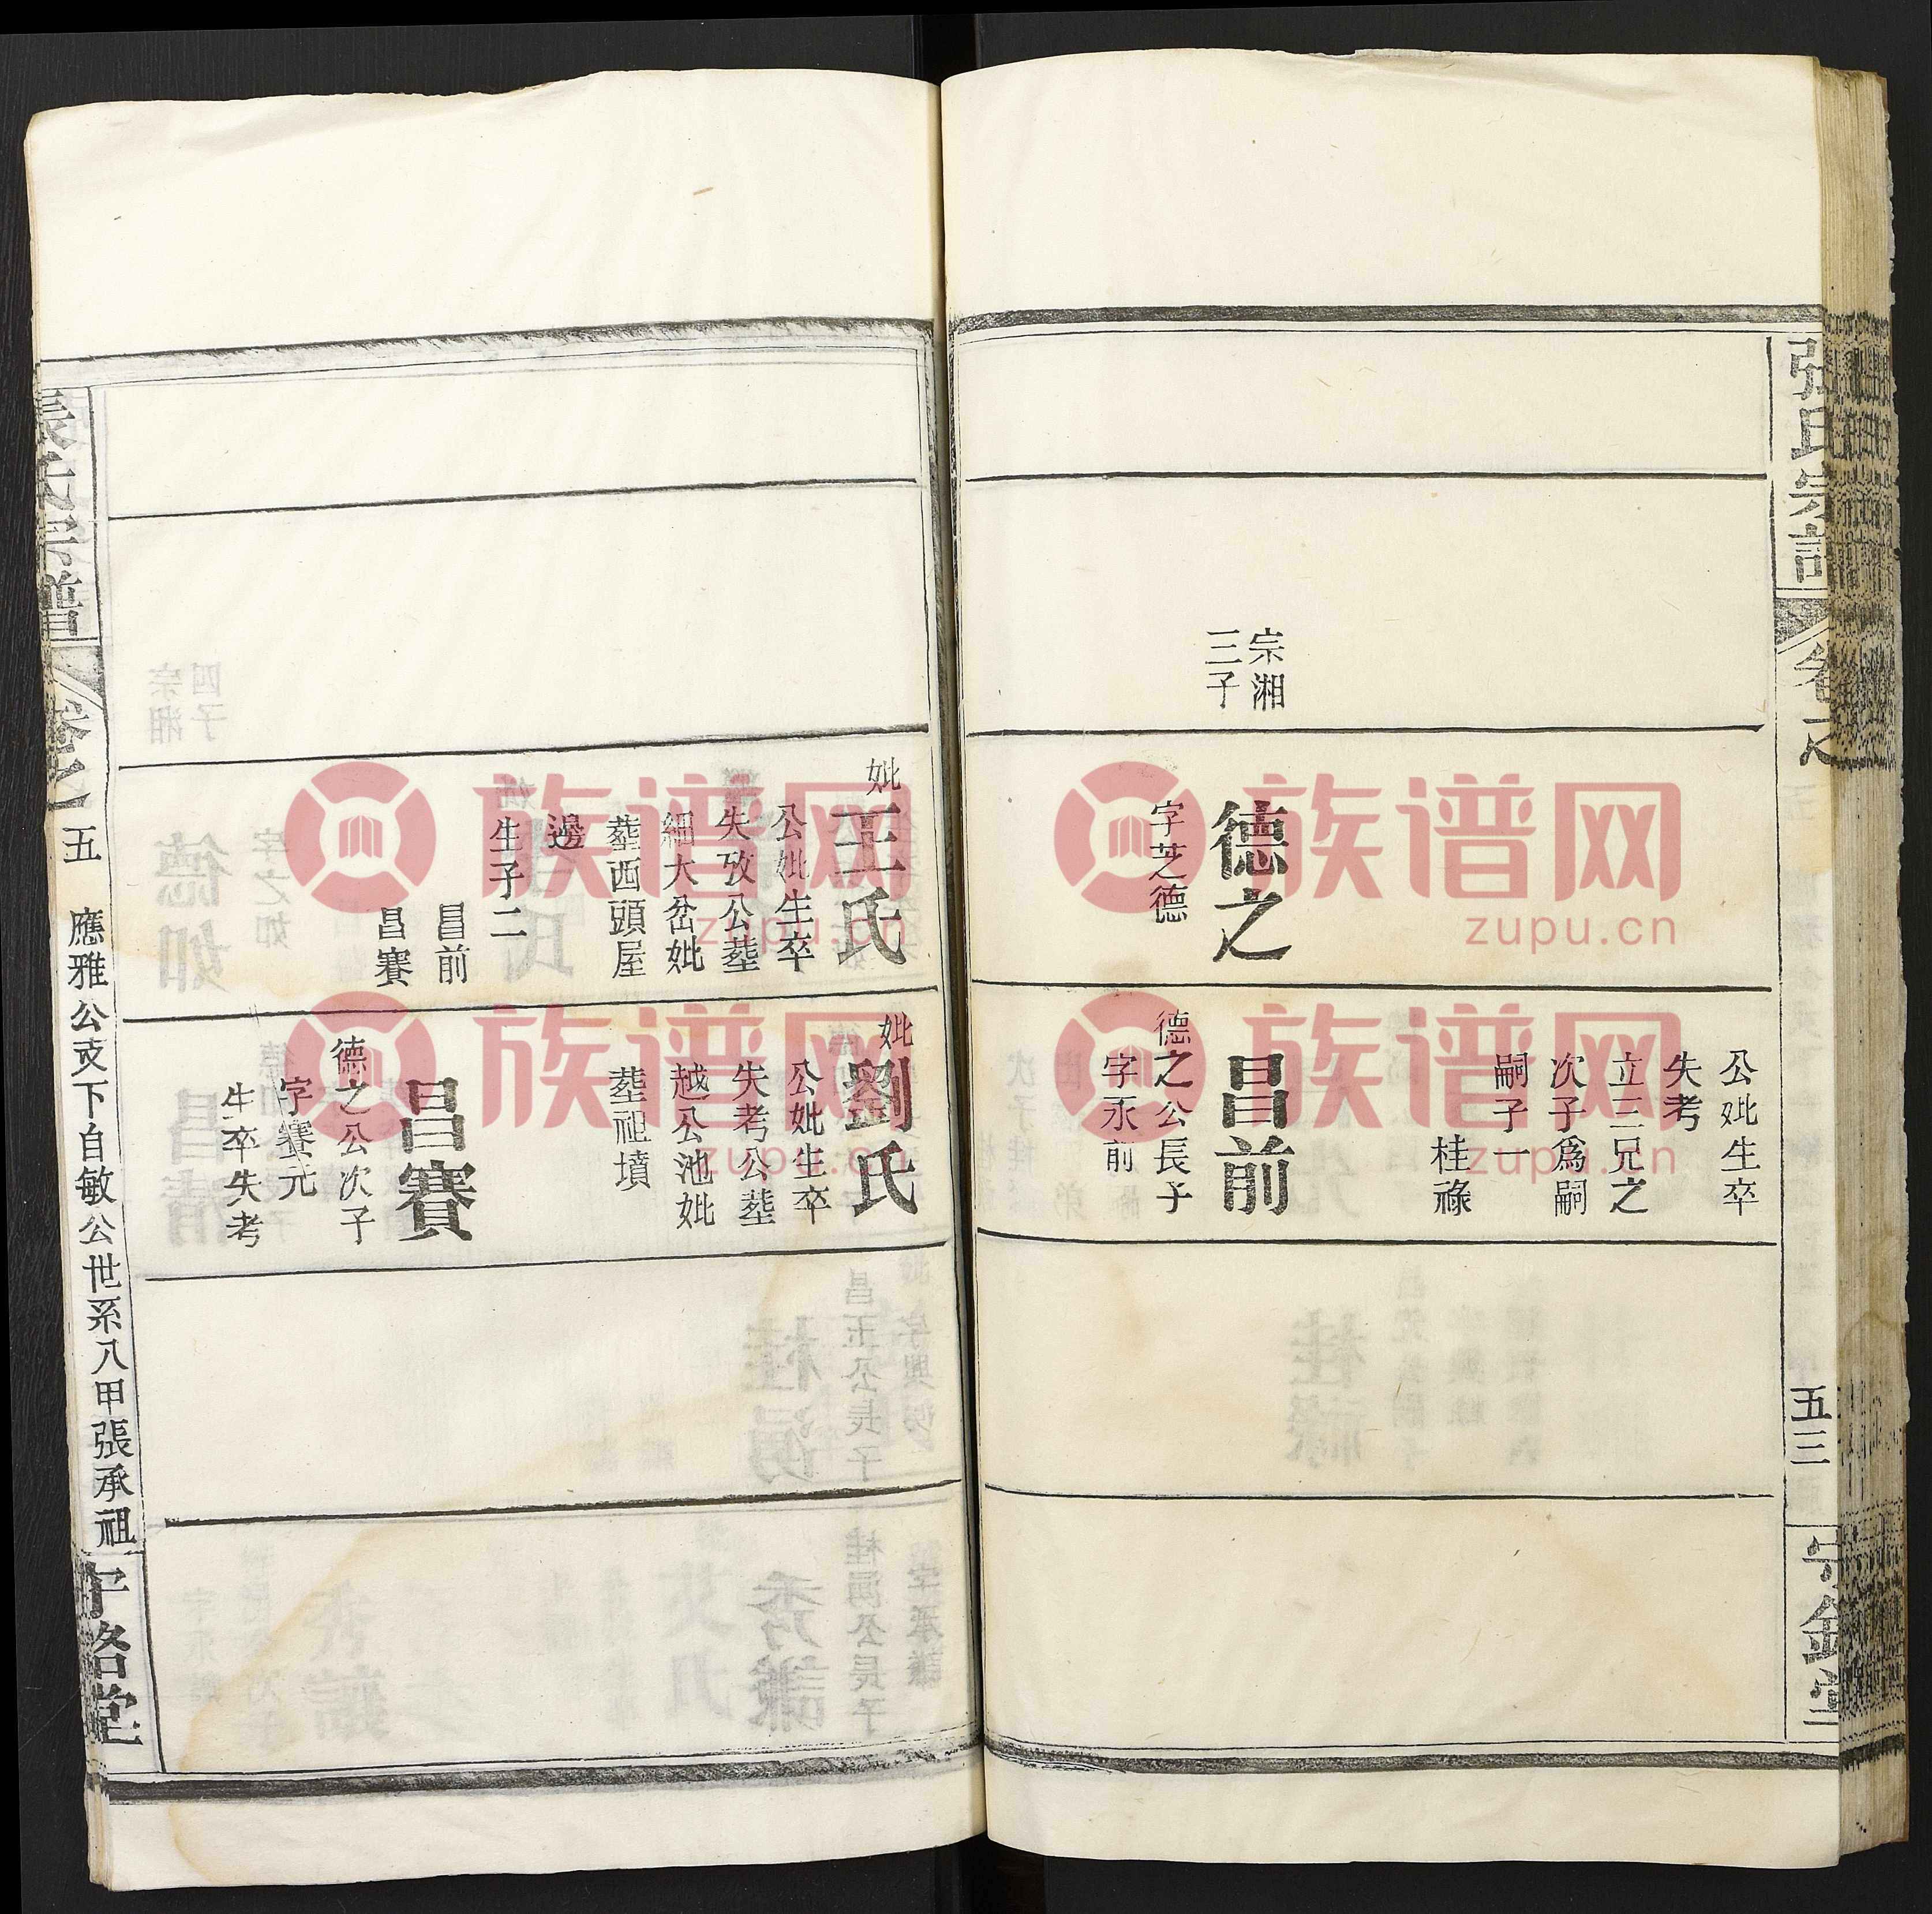 張氏宗譜
卷之
五三
宗湘
三子
德之
字芝德
公妣生卒
失考
立三兄之
次子爲嗣
嗣子一
桂祿
昌前
德之公長子
字永前
妣王氏
公妣生卒
失攷公塟
細大岔妣
塟西頭屋
邊
生子二
昌前
昌賽
妣劉氏
公妣生卒
失考公塟
越公池妣
塟祖墳
昌賽
德之公次子
字賽元
生卒失考
張氏宗譜
卷之五
應雅公支下自敏公世系八甲張承祖
族谱网
zupu.cn
族谱网
zupu.cn
族谱网
zupu.cn
族谱网
zupu.cn